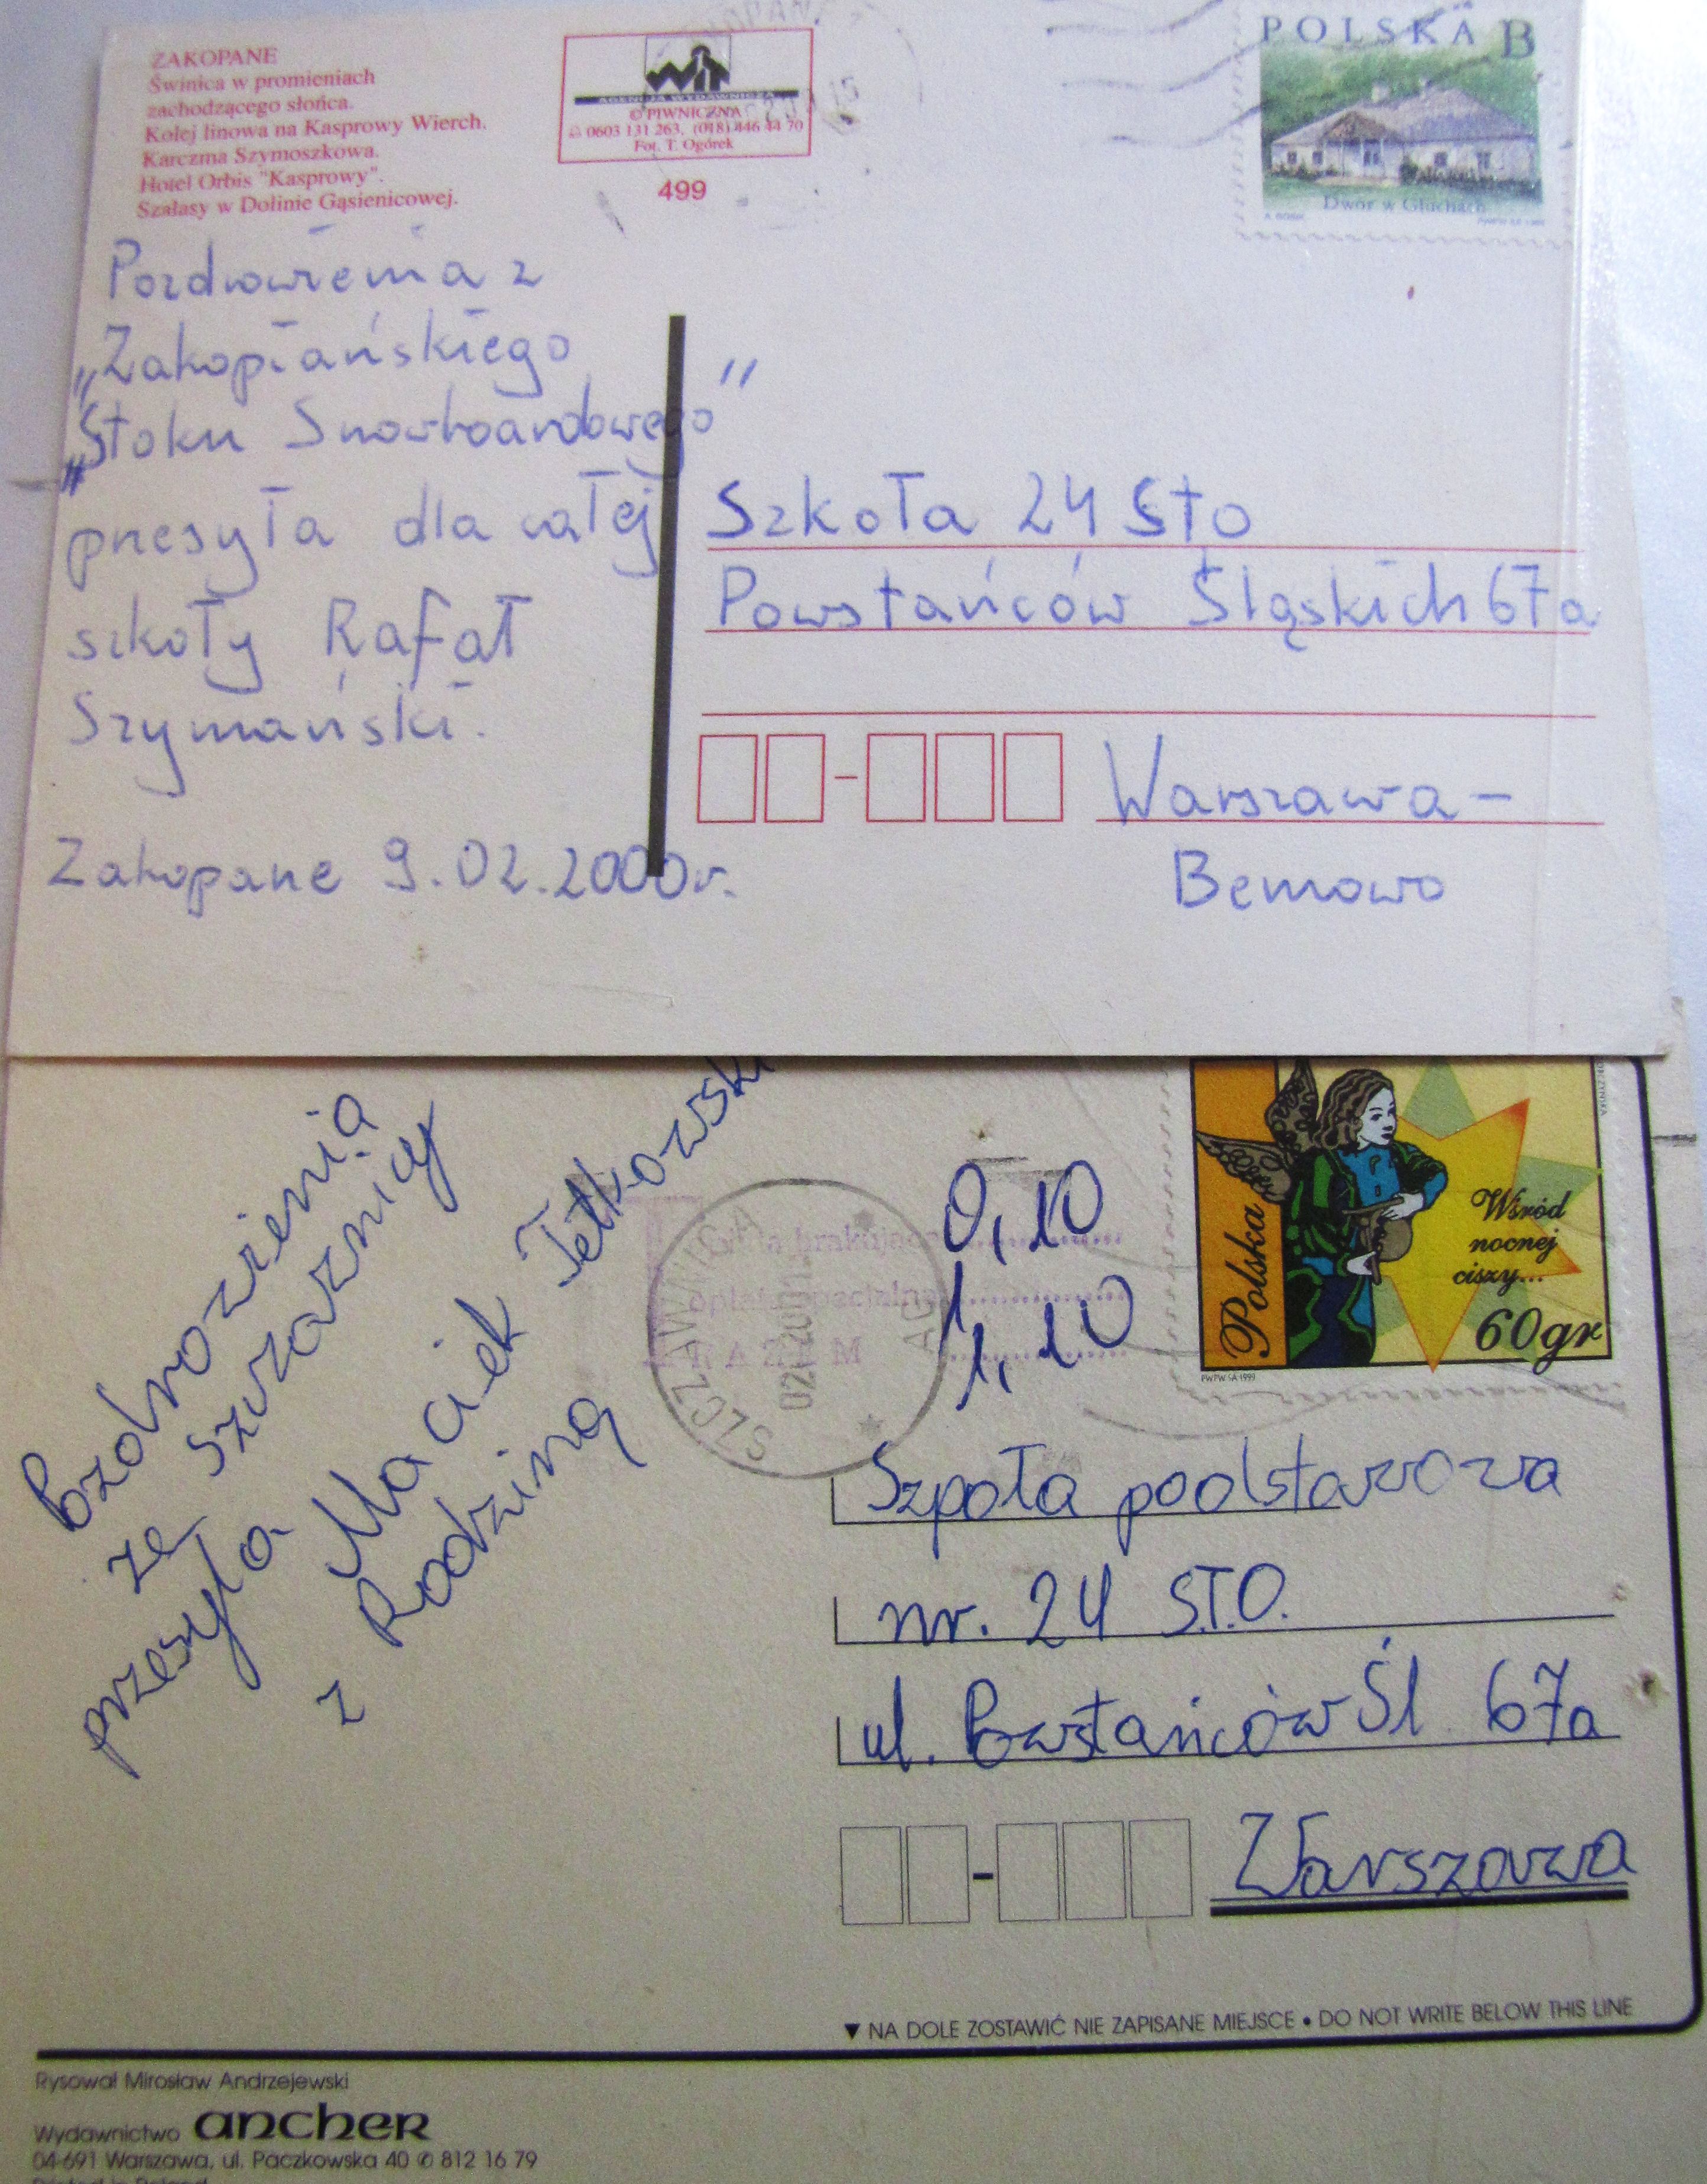 ZAKOPANE
Świnica w promieniach
zachodzącego słońca.
Kolej linowa na Kasprowy Wierch.
Karczma Szymoszkowa.
Hotel Orbis "Kasprowy".
Szałasy w Dolinie Gąsienicowej.
WiT
AGENCJA WYDAWNICZA
© PIWNICZNA
0603 131 263, (018) 446 44 70
Fot. T. Ogórek
499
POLSKA B
Dwór w Głuchach
Pozdrowienia z
„Zakopiańskiego
„Stoku Snowboardowego”
przesyła dla całej
szkoły Rafał
Szymański.
Zakopane 9.02.2000r.
Szkoła 24 Sto
Powstańców Śląskich 67a
Warszawa-
Bemowo
Pozdrowienia
ze Szczawnicy
przesyła Maciek Tetkowski
z Rodziną
SZCZAWNICA
opłata specjalna
0,10
1,10
Polska
Wśród
nocnej
ciszy...
60gr
PWPW SA 1999
Szpoła podstawowa
nr. 24 S.T.O.
ul. Powstańców Śl 67a
Warszawa
▼ NA DOLE ZOSTAWIĆ NIE ZAPISANE MIEJSCE • DO NOT WRITE BELOW THIS LINE
Rysował Mirosław Andrzejewski
Wydawnictwo ancher
04-691 Warszawa, ul. Paczkowska 40 ✆ 812 16 79
Printed in Poland